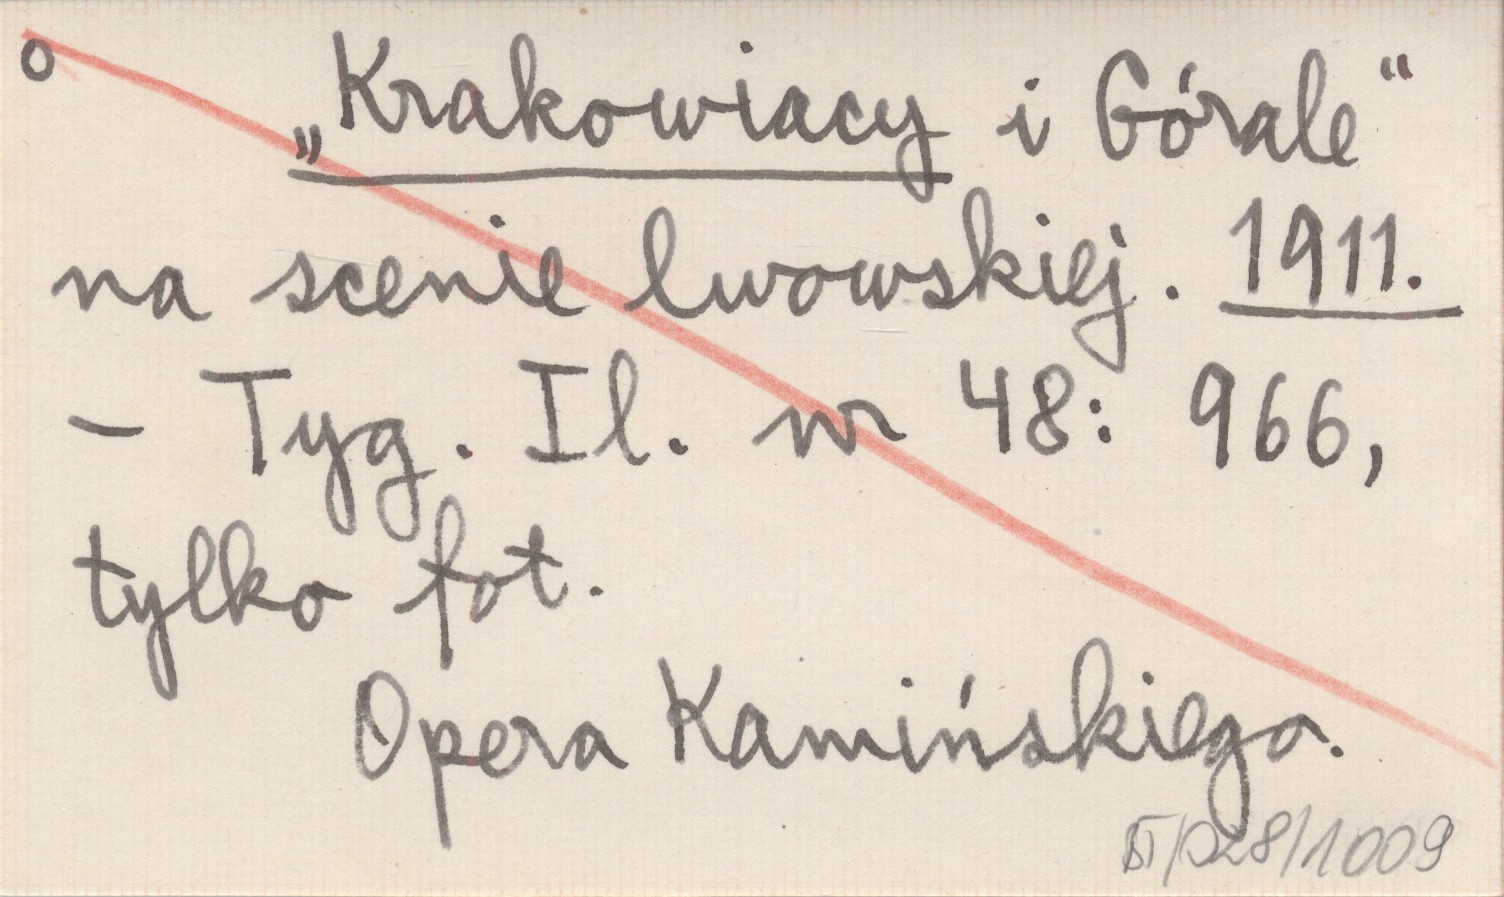 o „Krakowiacy i Górale“
na scenie lwowskiej. 1911.
- Tyg. Il. nr 48: 966,
tylko fot.
Opera Kamińskiego.
/1009